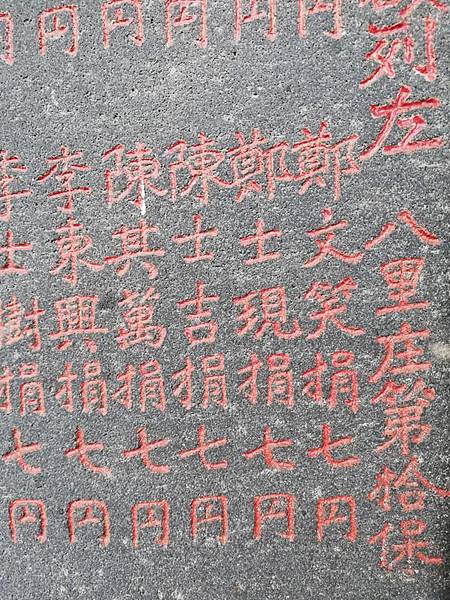 列左 八里庄第拾保
円 鄭文笑捐七円
円 鄭士現捐七円
円 陳士吉捐七円
円 陳其萬捐七円
円 李東興捐七円
円 李士樹捐七円